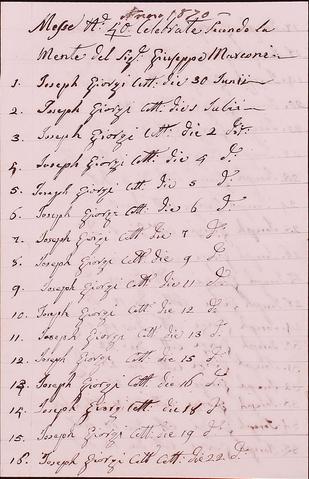 Anno 1870
Messe N.º 40. Celebrate Secondo la
Mente del Sig.r Giuseppe Marconi
1. Joseph Giorgi Cott: die 30 Junii
2. Joseph Giorgi Cott: die 1 Julii
3. Joseph Giorgi Cott: die 2 do:
4. Joseph Giorgi Cott: die 4 do:
5. Joseph Giorgi Cott: die 5 do:
6. Joseph Giorgi Cott: die 6 do:
7. Joseph Giorgi Cott: die 7 do:
8. Joseph Giorgi Cott: die 9 do:
9. Joseph Giorgi Cott: die 11 do:
10. Joseph Giorgi Cott: die 12 do:
11. Joseph Giorgi Cott: die 13 do:
12. Joseph Giorgi Cott: die 15 do:
13. Joseph Giorgi Cott: die 16 do:
14. Joseph Giorgi Cott: die 18 do:
15. Joseph Giorgi Cott: die 19 do:
16. Joseph Giorgi Cott Cott: die 22 do: